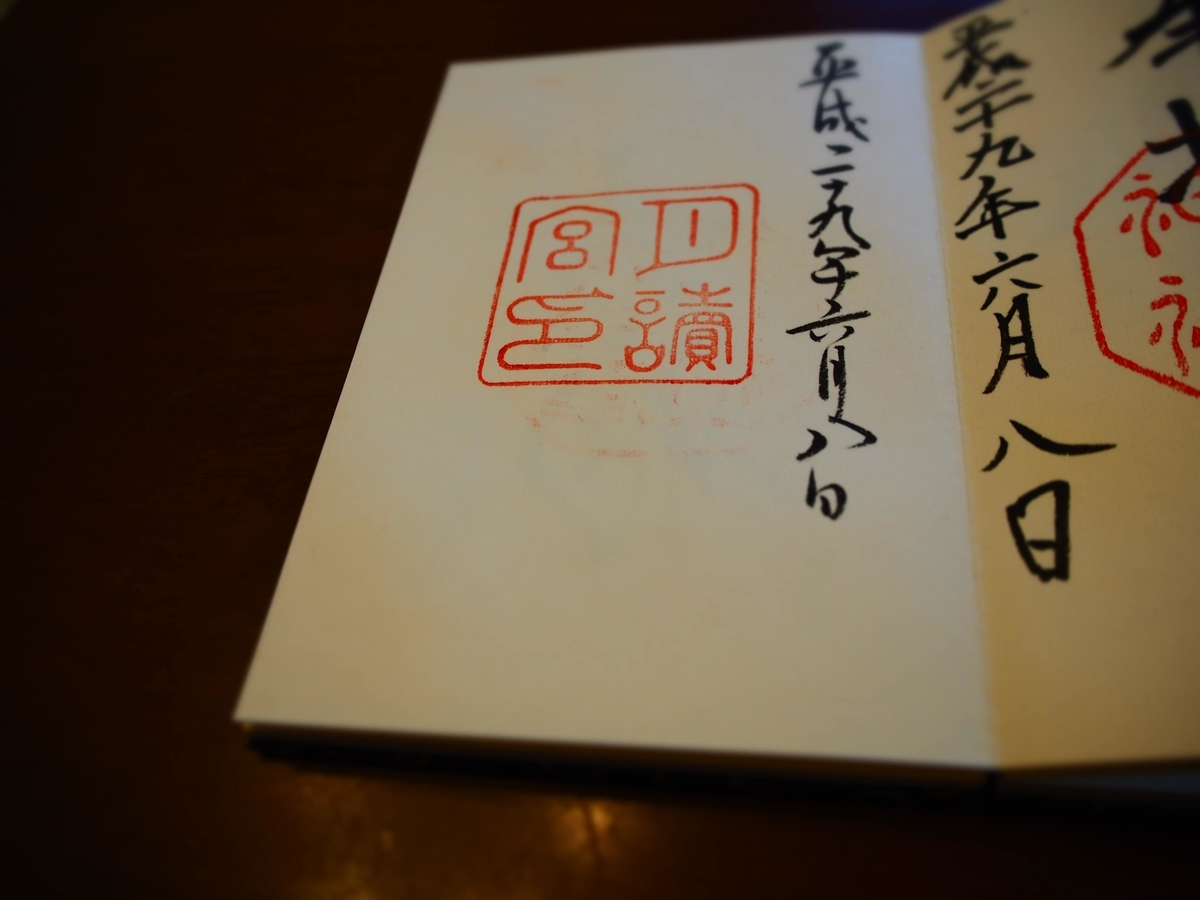 平成二十九年六月八日
平成二十九年六月八日
月讀
宮印